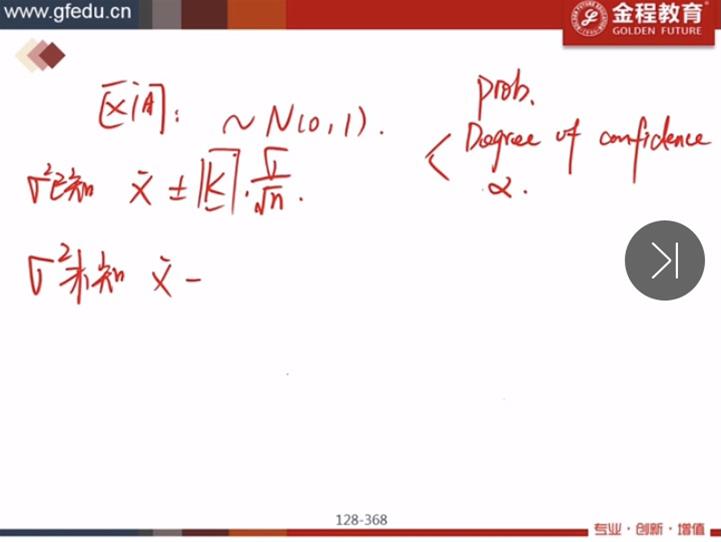 www.gfedu.cn
金程教育®
GOLDEN FUTURE
区间: ~N(0,1).
prob.
Degree of confidence
α.
σ²已知 x̄ ± |K|·σ/√n.
σ²未知 x̄ −
128-368
专业·创新·增值